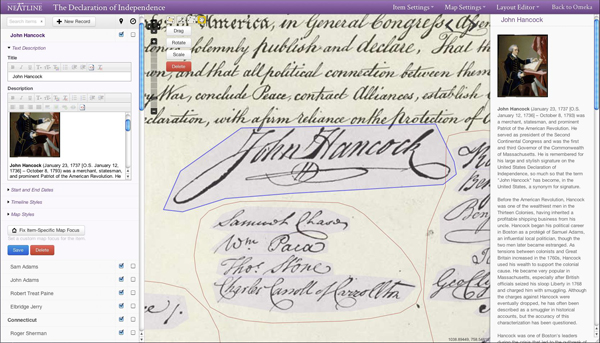 NEATLINE The Declaration of Independence Item Settings Map Settings Layout Editor Back to Omeka
Search Items
New Record
John Hancock
Text Description
Title
John Hancock
Description
John Hancock (January 23, 1737 [O.S. January 12, 1736] – October 8, 1793) was a merchant, statesman, and prominent Patriot of the American Revolution. He
Start and End Dates
Timeline Styles
Map Styles
Fix Item-Specific Map Focus
Set a custom map focus for the item
Save Delete
Sam Adams
John Adams
Robert Treat Paine
Elbridge Jerry
Connecticut
Roger Sherman
Drag
Rotate
Scale
Delete
America, in General Congress,
solemnly publish and declare, That th
and that all political connection between them
War, conclude Peace, contract Alliances, establish
claration, with a firm reliance on the protection of
John Hancock
Samuel Chase
Wm. Paca
Thos. Stone
Charles Carroll of Carrollton
John Hancock
John Hancock (January 23, 1737 [O.S. January
12, 1736] – October 8, 1793) was a merchant,
statesman, and prominent Patriot of the
American Revolution. He served as president of
the Second Continental Congress and was the first
and third Governor of the Commonwealth
of Massachusetts. He is remembered for
his large and stylish signature on the
United States Declaration of
Independence, so much so that the term
"John Hancock" has become, in the
United States, a synonym for signature.
Before the American Revolution, Hancock
was one of the wealthiest men in the
Thirteen Colonies, having inherited a
profitable shipping business from his
uncle. Hancock began his political career
in Boston as a protégé of Samuel Adams,
an influential local politician, though the
two men later became estranged. As
tensions between colonists and Great
Britain increased in the 1760s, Hancock
used his wealth to support the colonial
cause. He became very popular in
Massachusetts, especially after British
officials seized his sloop Liberty in 1768
and charged him with smuggling. Although
the charges against Hancock were
eventually dropped, he has often been
described as a smuggler in historical
accounts, but the accuracy of this
characterization has been questioned.
Hancock was one of Boston's leaders